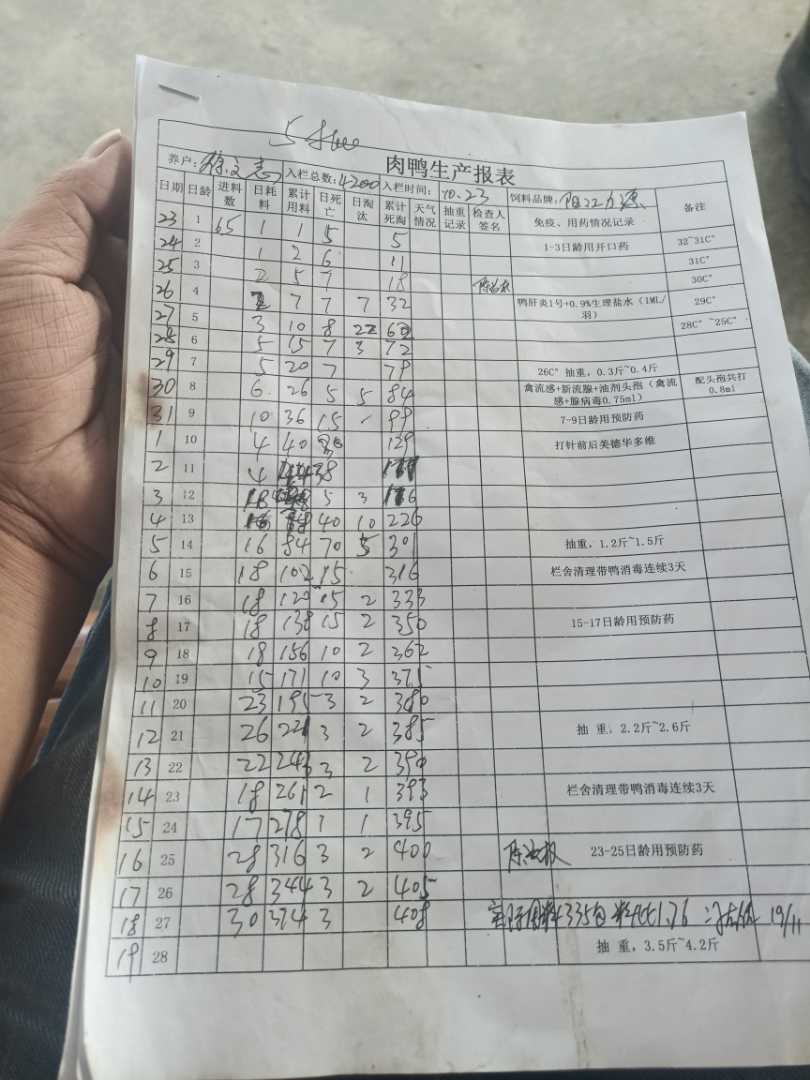 肉鸭生产报表
养户: 入栏总数:4200 入栏时间: 10.23 饲料品牌:
日期 日龄 进料数 日耗料 累计用料 日死亡 日淘汰 累计死淘 天气情况 抽重记录 检查人签名 免疫、用药情况记录 备注
23 1 65 1 1 5 5 1-3日龄用开口药 32~31C°
24 2 1 2 6 11 31C°
25 3 2 5 7 18 30C°
26 4 2 7 7 7 32 鸭肝炎1号+0.9%生理盐水(1ML/羽) 29C°
27 5 3 10 8 22 62 28C° ~25C°
28 6 5 15 7 3 72
29 7 5 20 7 79 26C° 抽重, 0.3斤~0.4斤
30 8 6 26 5 5 84 禽流感+新流腺+油剂头孢(禽流感+腺病毒0.75ml) 配头孢共打0.8ml
31 9 10 36 15 99 7-9日龄用预防药
1 10 4 40 30 129 打针前后美德华多维
2 11 4 38
3 12 18 5 3 176
4 13 16 40 10 226
5 14 16 84 70 5 301 抽重, 1.2斤~1.5斤
6 15 18 102 15 316 栏舍清理带鸭消毒连续3天
7 16 18 120 15 2 333
8 17 18 138 15 2 350 15-17日龄用预防药
9 18 18 156 10 2 362
10 19 15 171 10 3 375
11 20 23 195 3 2 380
12 21 26 221 3 2 385 抽 重, 2.2斤~2.6斤
13 22 22 243 3 2 390
14 23 18 261 2 1 393 栏舍清理带鸭消毒连续3天
15 24 17 278 1 1 395
16 25 28 316 3 2 400 23-25日龄用预防药
17 26 28 344 3 2 405
18 27 30 374 3 408 实际用料335包 料比1.76 19/11
19 28 抽 重, 3.5斤~4.2斤